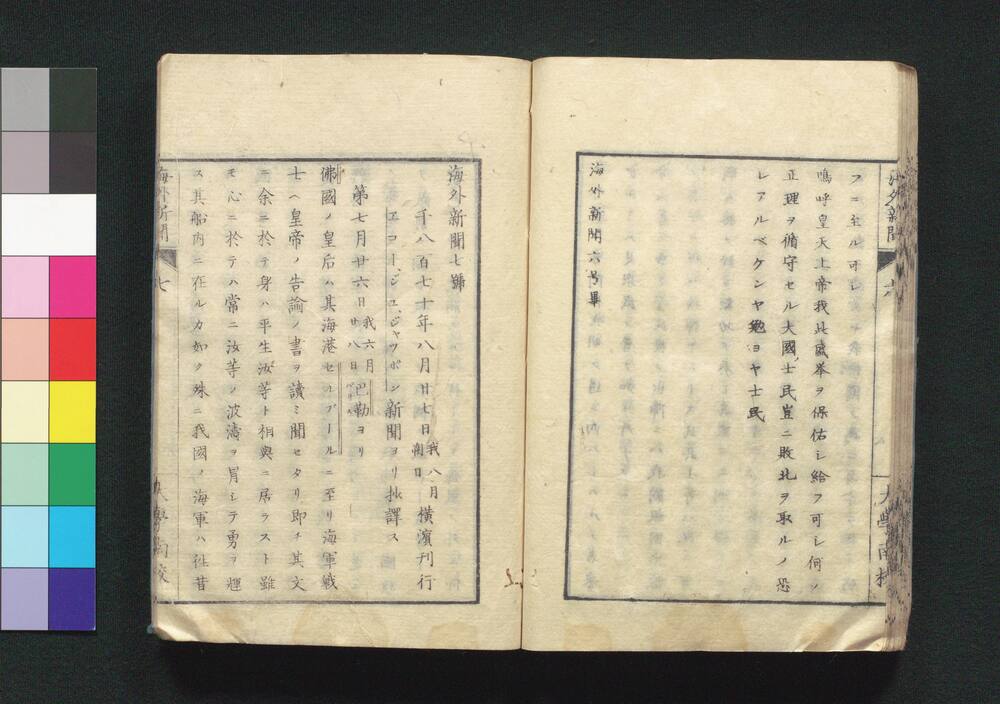 フニ至ル可シ
嗚呼皇天上帝我此盛挙ヲ保佑シ給フ可シ何ノ
正理ヲ循守セル大國士民豈ニ敗北ヲ取ルノ恐
レアルベケンヤ勉ヨヤ士民
海外新聞六号畢
海外新聞七號
千八百七十年八月廿七日我八月朔日横濱刊行
エコー、ジユ、ジヤツポン新聞ヨリ抄譯ス
第七月廿六日我六月廿八日巴勒ヨリ
佛國ノ皇后ハ其海港セルブールニ至リ海軍戦
士ヘ皇帝ノ告諭ノ書ヲ讀ミ聞セタリ即チ其文
ニ余ニ於テ身ハ平生汝等ト相與ニ居ラスト雖
モ心ニ於テハ常ニ汝等ノ波濤ヲ冒シテ勇ヲ輝
ス其船内ニ在ルカ如ク殊ニ我國ノ海軍ハ往昔
海外新聞
七